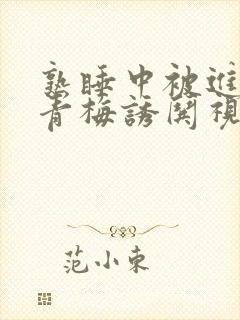 熟睡中被進
青梅誘関視
范小東